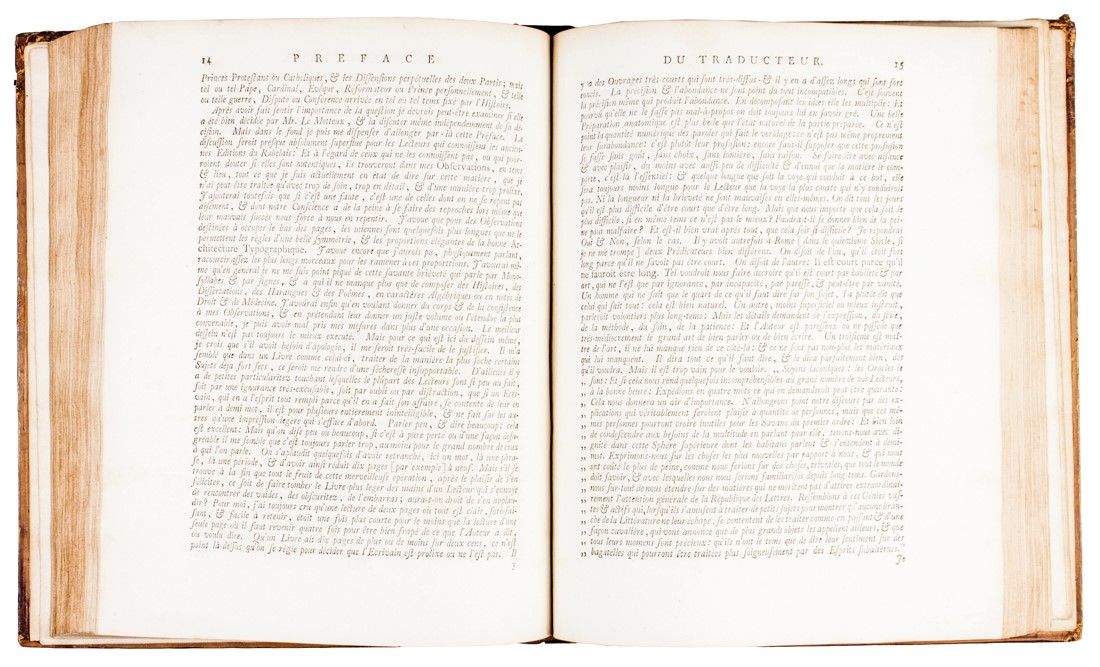 14 PREFACE
Princes Protestans ou Catholiques, & les Dissensions perpétuelles des deux Partis; mais
tel ou tel Pape, Cardinal, Evêque, Réformateur ou Prince personnellement, & telle
ou telle guerre, Dispute ou Conférence arrivée en tel ou tel tems fixé par l'Histoire.
Après avoir fait sentir l'importance de la question je devrois peut-être examiner si elle
a été bien décidée par Mr. Le Motteux, & la discuter même indépendamment de sa dé-
cision. Mais dans le fond je puis me dispenser d'allonger par-là cette Préface. La
discussion seroit presque absolument superflue pour les Lecteurs qui connoissent les ancien-
nes Editions du Rabelais: Et à l'égard de ceux qui ne les connoissent pas, ou qui pour-
roient douter si elles sont autentiques, ils trouveront dans mes Observations, en tems
& lieu, tout ce que je suis actuellement en état de dire sur cette matière, que je
n'ai peut-être traitée qu'avec trop de soin, trop en détail, & d'une manière trop prolixe.
J'ajouterai toutefois que si c'est une faute, c'est une de celles dont on ne se repent pas
aisément, & dont notre Conscience a de la peine à se faire des reproches lors même que
leur mauvais succès nous force à nous en repentir. J'avoue que pour des Observations
destinées à occuper le bas des pages, les miennes sont quelquefois plus longues que ne le
permettent les règles d'une belle symmétrie, & les proportions élégantes de la bonne Ar-
chitecture Typographique. J'avoue encore que j'aurois pu, physiquement parlant,
raccourcir assez les plus longs morceaux pour les ramener à ces proportions. J'avouerai mê-
me qu'en général je ne me suis point piqué de cette savante brièveté qui parle par Mono-
syllabes & par signes, & à qui il ne manque plus que de composer des Histoires, des
Dissertations, des Harangues & des Poëmes, en caractères Algébriques ou en notes de
Droit & de Médecine. J'avouerai enfin qu'en voulant donner du corps & de la consistence
à mes Observations, & en prétendant leur donner un juste volume ou l'étendue la plus
convenable, je puis avoir mal pris mes mesures dans plus d'une occasion. Le meilleur
dessein n'est pas toujours le mieux executé. Mais pour ce qui est ici du dessein même,
je crois que s'il avoit besoin d'apologie, il me seroit très-facile de le justifier. Il m'a
semblé que dans un Livre comme celui-ci, traiter de la manière la plus sèche certains
Sujets déja fort secs, ce seroit me rendre d'une sécheresse insupportable. D'ailleurs il y
a de petites particularitez touchant lesquelles la plûpart des Lecteurs sont si peu au fait,
soit par une ignorance très-excusable, soit par oubli ou par distraction, que si un Ecri-
vain, qui en a l'esprit tout rempli parce qu'il en a fait son affaire, se contente de leur en
parler à demi mot, il est pour plusieurs entierement inintelligible, & ne fait sur les au-
tres qu'une impression légere qui s'efface d'abord. Parler peu, & dire beaucoup: cela
est excellent: Mais qu'on dise peu ou beaucoup, si c'est à pure perte ou d'une façon desa-
gréable il me semble que c'est toujours parler trop, au moins pour le grand nombre de ceux
à qui l'on parle. On s'aplaudit quelquefois d'avoir retranché, ici un mot, là une phra-
se, là une période, & d'avoir ainsi réduit dix pages [par exemple] à neuf. Mais s'il se
trouve à la fin que tout le fruit de cette merveilleuse opération, après le plaisir de s'en
féliciter, ce soit de faire tomber le Livre plus leger des mains d'un Lecteur qui s'ennuye
de rencontrer des vuides, des obscuritez, de l'embarras; aura-t-on droit de s'en applau-
dir? Pour moi, j'ai toujours cru qu'une lecture de deux pages où tout est clair, satisfai-
sant, & facile à retenir, étoit une fois plus courte pour le moins que la lecture d'une
seule page où il faut revenir quatre fois pour être bien frapé de ce que l'Auteur a dit,
ou voulu dire. Qu'un Livre ait dix pages de plus ou de moins sur deux cens, ce n'est
point là-dessus qu'on se règle pour décider que l'Ecrivain est prolixe ou ne l'est pas. Il
y
DU TRADUCTEUR. 15
y a des Ouvrages très-courts qui sont très-diffus & il y en a d'assez longs qui sont fort
concis. La précision & l'abondance ne sont point du tout incompatibles. C'est souvent
la précision même qui produit l'abondance. En décomposant les idées elle les multiplie: Et
pourvu qu'elle ne le fasse pas mal-à-propos on doit toujours lui en savoir gré. Une belle
Préparation anatomique est plus belle que l'état naturel de la partie préparée. Ce n'est
point la quantité numérique des paroles qui fait le verbiage: ce n'est pas même proprement
leur surabondance: c'est plutôt leur profusion: encore faut-il supposer que cette profusion
se fasse sans goût, sans choix, sans lumière, sans raison. Se faire lire avec aisance
& avec plaisir, du moins avec aussi peu de difficulté & d'ennui que la matière le com-
porte, c'est-là l'essentiel: & quelque longue que soit la voye qui conduit à ce but, elle
sera toujours moins longue pour le Lecteur que la voye la plus courte qui n'y conduiroit
pas. Ni la longueur ni la brieveté ne sont mauvaises en elles-mêmes. On dit tous les jours
qu'il est plus difficile d'être court que d'être long. Mais que nous importe que cela soit le
plus difficile, si en même tems ce n'est pas le mieux? Faudra-t-il se donner bien de la pei-
ne pour malfaire? Et est-il bien vrai après tout, que cela soit si difficile? Je répondrai
Oui & Non, selon le cas. Il y avoit autrefois à Rome [dans le quinzième Siècle, si
je ne me trompe] deux Prédicateurs bien différens. On disoit de l'un, qu'il étoit fort
long parce qu'il ne savoit pas être court. On disoit de l'autre: Il est court parce qu'il
ne sauroit être long. Tel voudroit nous faire accroire qu'il est court par habileté & par
art, qui ne l'est que par ignorance, par incapacité, par paresse, & peut-être par vanité.
Un homme qui ne sait que le quart de ce qu'il faut dire sur son sujet, l'a plutôt dit que
celui qui sait tout: cela est bien naturel. Un autre, moins superficiel ou mieux instruit,
parleroit volontiers plus long-tems: Mais les détails demandent de l'expression, du stile,
de la méthode, du soin, de la patience: Et l'Auteur est paresseux ou ne possède que
très-médiocrement le grand art de bien parler ou de bien écrire. Un troisième est maî-
tre de l'art, il ne lui manque rien de ce côté-là: & ce ne sont pas non-plus les matériaux
qui lui manquent. Il dira tout ce qu'il faut dire, & le dira parfaitement bien, dès
qu'il voudra. Mais il est trop vain pour le vouloir. „ Soyons laconiques: les Oracles le
„ sont: Et si cela nous rend quelquefois incompréhensibles au grand nombre de nos Lecteurs,
„ à la bonne heure: Expédions en quatre mots ce qui en demanderoit peut-être quarante:
„ Cela nous donnera un air d'importance. N'allongeons point notre discours par des ex-
„ plications qui véritablement seroient plaisir à quantité de personnes, mais que ces mê-
„ mes personnes pourront croire inutiles pour les Savans du premier ordre: Et bien loin
„ de condescendre aux besoins de la multitude en parlant pour elle, tenons-nous avec di-
„ gnité dans cette Sphère supérieure dont les habitans parlent & s'entendent à demi-
„ mot. Exprimons-nous sur les choses les plus nouvelles par rapport à nous, & qui nous
„ ont coûté le plus de peine, comme nous ferions sur des choses triviales, que tout le monde
„ doit savoir, & avec lesquelles nous nous serions familiarisés depuis long tems. Gardons-
„ nous sur-tout de nous étendre sur des matières qui ne méritent pas d'attirer extraordinai-
„ rement l'attention générale de la République des Lettres. Ressemblons à ces Génies vas-
„ tes & actifs qui, lorsqu'ils s'amusent à traiter de petits sujets pour montrer qu'aucune bran-
„ che de la Littérature ne leur échape, se contentent de les traiter comme en passant & d'une
„ façon cavalière, qui vous annonce que de plus grands objets les appellent ailleurs, & que
„ tous leurs momens sont précieux: qu'ils n'ont le tems que de dire leur sentiment sur des
„ bagatelles qui pourront être traitées plus soigneusement par des Esprits subalternes."
Je